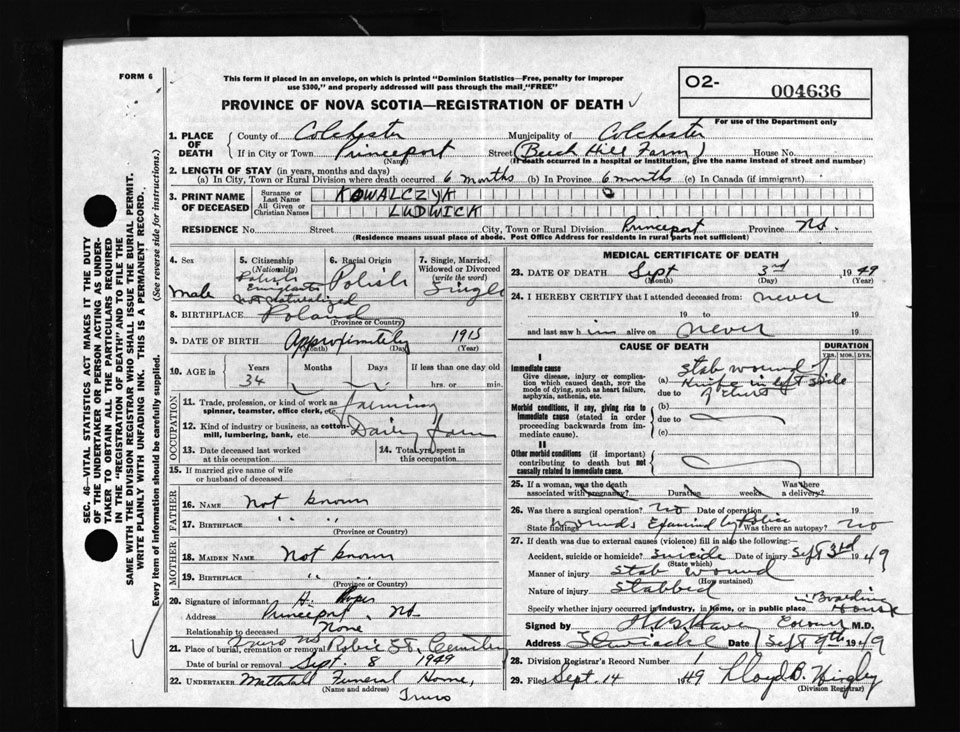 FORM 6
This form if placed in an envelope, on which is printed "Dominion Statistics—Free, penalty for improper
use $300," and properly addressed will pass through the mail "FREE"
PROVINCE OF NOVA SCOTIA—REGISTRATION OF DEATH
O2- 004636
For use of the Department only
SEC. 46—VITAL STATISTICS ACT MAKES IT THE DUTY
OF THE UNDERTAKER OR PERSON ACTING AS UNDER-
TAKER TO OBTAIN ALL THE PARTICULARS REQUIRED
IN THE "REGISTRATION OF DEATH" AND TO FILE THE
SAME WITH THE DIVISION REGISTRAR WHO SHALL ISSUE THE BURIAL PERMIT.
WRITE PLAINLY WITH UNFADING INK. THIS IS A PERMANENT RECORD.
Every item of information should be carefully supplied. (See reverse side for instructions.)
1. PLACE OF DEATH
County of Colchester Municipality of Colchester
If in City or Town Princeport Street (Beech Hill Farm) House No.
(Name) (If death occurred in a hospital or institution, give the name instead of street and number)
2. LENGTH OF STAY (in years, months and days)
(a) In City, Town or Rural Division where death occurred 6 months (b) In Province 6 months (c) In Canada (if immigrant)
3. PRINT NAME OF DECEASED
Surname or Last Name KOWALCZYK
All Given or Christian Names LUDWICK
RESIDENCE No. Street City, Town or Rural Division Princeport Province NS.
(Residence means usual place of abode. Post Office Address for residents in rural parts not sufficient)
4. Sex male
5. Citizenship (Nationality) Polish Emigrant not naturalized
6. Racial Origin Polish
7. Single, Married, Widowed or Divorced (write the word) Single
8. BIRTHPLACE Poland
(Province or Country)
9. DATE OF BIRTH Approximately 1915
(Month) (Day) (Year)
10. AGE IN Years 34 Months Days If less than one day old hrs. or min.
OCCUPATION
11. Trade, profession, or kind of work as spinner, teamster, office clerk, etc. farming
12. Kind of industry or business, as cotton-mill, lumbering, bank, etc. Dairy farm
13. Date deceased last worked at this occupation
14. Total yrs. spent in this occupation
15. If married give name of wife or husband of deceased
FATHER
16. NAME Not known
17. BIRTHPLACE " "
(Province or Country)
MOTHER
18. MAIDEN NAME Not known
19. BIRTHPLACE " "
(Province or Country)
20. Signature of informant H.
Address Princeport, NS.
Relationship to deceased None
21. Place of burial, cremation or removal Truro NS Robie St. Cemetery
Date of burial or removal Sept. 8 1949
22. UNDERTAKER Mattatall Funeral Home,
(Name and address) Truro
MEDICAL CERTIFICATE OF DEATH
23. DATE OF DEATH Sept 3rd 1949
(Month) (Day) (Year)
24. I HEREBY CERTIFY that I attended deceased from: never
19 to 19
and last saw him alive on never 19
CAUSE OF DEATH
DURATION
YRS. MOS. DYS.
I
Immediate cause
Give disease, injury or complication which caused death, NOT the mode of dying, such as heart failure, asphyxia, asthenia, etc.
(a) stab wound of
Knife in left side
due to of chest
Morbid conditions, if any, giving rise to immediate cause (stated in order proceeding backwards from immediate cause).
(b)
due to
(c)
II
Other morbid conditions (if important) contributing to death but not causally related to immediate cause.
25. If a woman, was the death associated with pregnancy? Duration weeks Was there a delivery?
26. Was there a surgical operation? no Date of operation 19
State findings wounds Examined by Police Was there an autopsy? no
27. If death was due to external causes (violence) fill in also the following:—
Accident, suicide or homicide? suicide Date of injury Sept 3rd 1949
(State which)
Manner of injury stab wound
(How sustained)
Nature of injury Stabbed
Specify whether injury occurred in industry, in home, or in public place in Boarding House
Signed by Coroner M.D.
Address Stewiacke Date Sept 9th 1949
28. Division Registrar's Record Number 1
29. Filed Sept. 14 1949 Lloyd B. Hingley
(Division Registrar)